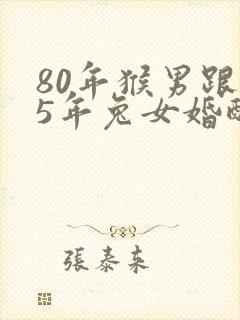 80年猴男跟
5年兔女婚
張泰来